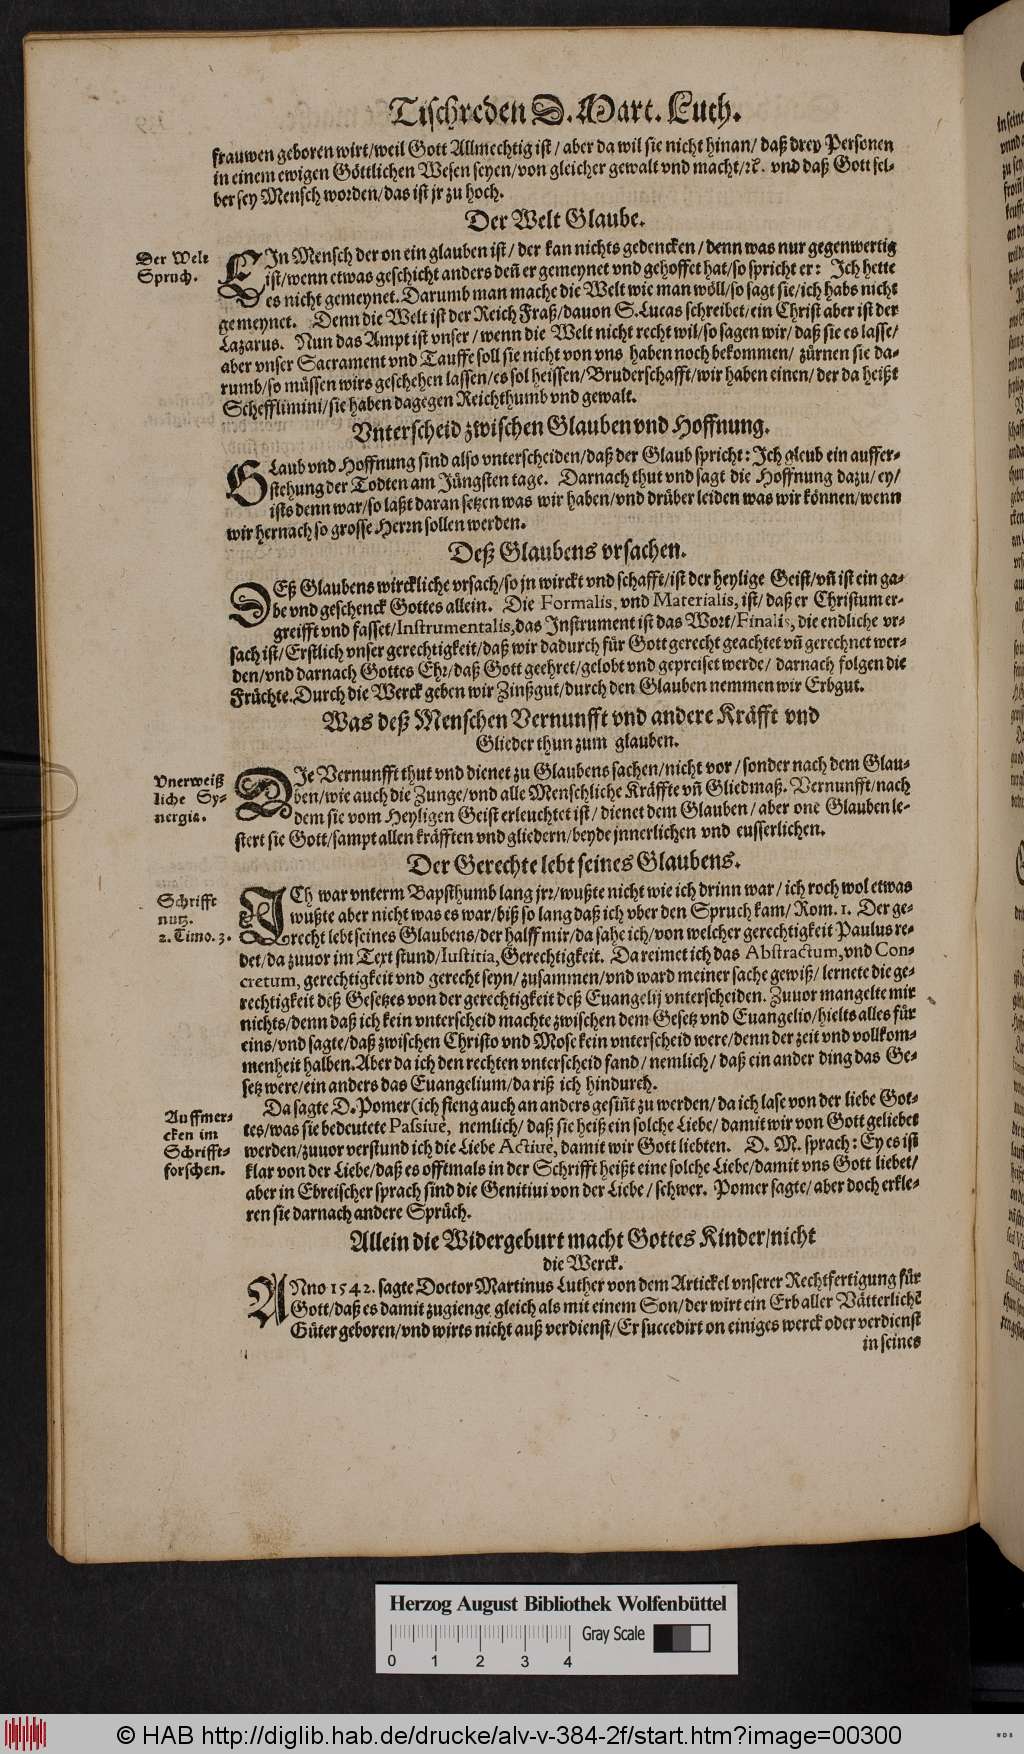 Tischreden D. Mart. Luth.
frauwen geboren wirt/weil Gott Allmechtig ist/ aber da wil sie nicht hinan/ daß drey Personen
in einem ewigen Göttlichen Wesen seyen/von gleicher gewalt vnd macht/ꝛc. vnd daß Gott sel-
ber sey Mensch worden/das ist jr zu hoch.
Der Welt Glaube.
Der Welt
Spruch.
EIn Mensch der on ein glauben ist/ der kan nichts gedencken/ denn was nur gegenwertig
ist/wenn etwas geschicht anders deñ er gemeynet vnd gehoffet hat/so spricht er: Ich hette
es nicht gemeynet. Darumb man mache die Welt wie man wöll/so sagt sie/ich habs nicht
gemeynet. Denn die Welt ist der Reich Fraß/dauon S. Lucas schreibet/ein Christ aber ist der
Lazarus. Nun das Ampt ist vnser/wenn die Welt nicht recht wil/so sagen wir/daß sie es lasse/
aber vnser Sacrament vnd Tauffe soll sie nicht von vns haben noch bekommen/ zürnen sie da-
rumb/so müssen wirs geschehen lassen/es sol heissen/Bruderschafft/wir haben einen/der da heißt
Schefflimini/sie haben dagegen Reichthumb vnd gewalt.
Vnterscheid zwischen Glauben vnd Hoffnung.
GLaub vnd Hoffnung sind also vnterscheiden/daß der Glaub spricht: Ich gleub ein auffer-
stehung der Todten am Jüngsten tage. Darnach thut vnd sagt die Hoffnung dazu/ey/
ists denn war/so laßt daran setzen was wir haben/vnd drüber leiden was wir können/wenn
wir hernach so grosse Herrn sollen werden.
Deß Glaubens vrsachen.
DEß Glaubens wirckliche vrsach/so jn wirckt vnd schafft/ist der heylige Geist/vñ ist ein ga-
be vnd geschenck Gottes allein. Die Formalis, vnd Materialis, ist/daß er Christum er-
greifft vnd fasset/Instrumentalis,das Instrument ist das Wort/Finalis, die endliche vr-
sach ist/Erstlich vnser gerechtigkeit/daß wir dadurch für Gott gerecht geachtet vñ gerechnet wer-
den/vnd darnach Gottes Ehr/daß Gott geehret/gelobt vnd gepreiset werde/ darnach folgen die
Früchte. Durch die Werck geben wir Zinßgut/durch den Glauben nemmen wir Erbgut.
Was deß Menschen Vernunfft vnd andere Kräfft vnd
Glieder thun zum glauben.
Vnerweiß
liche Sy-
nergia.
DIe Vernunfft thut vnd dienet zu Glaubens sachen/nicht vor/sonder nach dem Glau-
ben/wie auch die Zunge/vnd alle Menschliche Kräffte vñ Gliedmaß. Vernunfft/nach
dem sie vom Heyligen Geist erleuchtet ist/ dienet dem Glauben/ aber one Glauben le-
stert sie Gott/sampt allen kräfften vnd gliedern/beyde jnnerlichen vnd eusserlichen.
Der Gerechte lebt seines Glaubens.
Schrifft
nutz.
2. Timo. 3.
ICh war vnterm Bapsthumb lang jrr/wußte nicht wie ich drinn war/ich roch wol etwas
wußte aber nicht was es war/biß so lang daß ich vber den Spruch kam/Rom. 1. Der ge-
recht lebt seines Glaubens/der halff mir/da sahe ich/von welcher gerechtigkeit Paulus re-
det/da zuuor im Text stund/Iustitia, Gerechtigkeit. Da reimet ich das Abstractum,vnd Con-
cretum, gerechtigkeit vnd gerecht seyn/zusammen/vnd ward meiner sache gewiß/ lernete die ge-
rechtigkeit deß Gesetzes von der gerechtigkeit deß Euangelij vnterscheiden. Zuuor mangelte mir
nichts/denn daß ich kein vnterscheid machte zwischen dem Gesetz vnd Euangelio/hielts alles für
eins/vnd sagte/daß zwischen Christo vnd Mose kein vnterscheid were/denn der zeit vnd vollkom-
menheit halben. Aber da ich den rechten vnterscheid fand/nemlich/ daß ein ander ding das Ge-
setz were/ein anders das Euangelium/da riß ich hindurch.
Auffmer-
cken im
Schrifft-
forschen.
Da sagte D. Pomer (ich fieng auch an anders gesiñt zu werden/da ich lase von der liebe Got-
tes/was sie bedeutete Passiuè, nemlich/ daß sie heiß ein solche Liebe/damit wir von Gott geliebet
werden/zuuor verstund ich die Liebe Actiuè, damit wir Gott liebten. D. M. sprach: Ey es ist
klar von der Liebe/daß es offtmals in der Schrifft heißt eine solche Liebe/damit vns Gott liebet/
aber in Ebreischer sprach sind die Genitiui von der Liebe/ schwer. Pomer sagte/ aber doch erkle-
ren sie darnach andere Sprüch.
Allein die Widergeburt macht Gottes Kinder/nicht
die Werck.
ANno 1542. sagte Doctor Martinus Luther von dem Artickel vnserer Rechtfertigung für
Gott/daß es damit zugienge gleich als mit einem Son/der wirt ein Erb aller Vätterlichẽ
Güter geboren/vnd wirts nicht auß verdienst/Er succedirt on einiges werck oder verdienst
in seines
Herzog August Bibliothek Wolfenbüttel
Gray Scale
0 1 2 3 4
© HAB http://diglib.hab.de/drucke/alv-v-384-2f/start.htm?image=00300